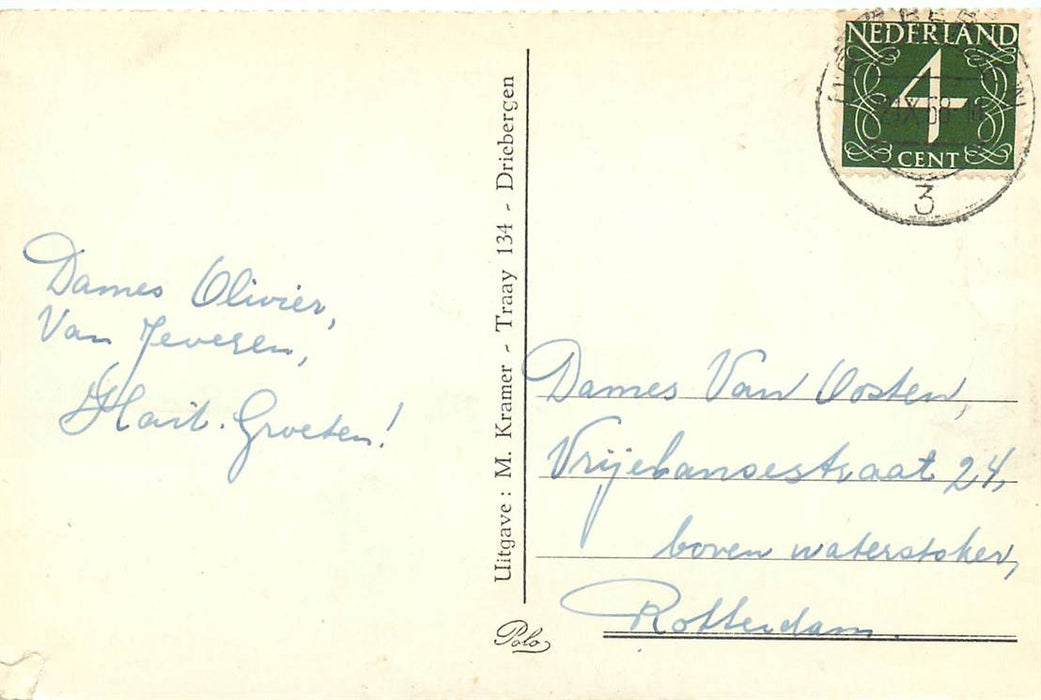 Dames Olivier,
Van Jeveren,
Hart. Groeten!
Uitgave: M. Kramer - Traay 134 - Driebergen
Polo
NEDERLAND
4
CENT
3
Dames Van Oosten,
Vrijehansestraat 24,
boven waterstoker,
Rotterdam.